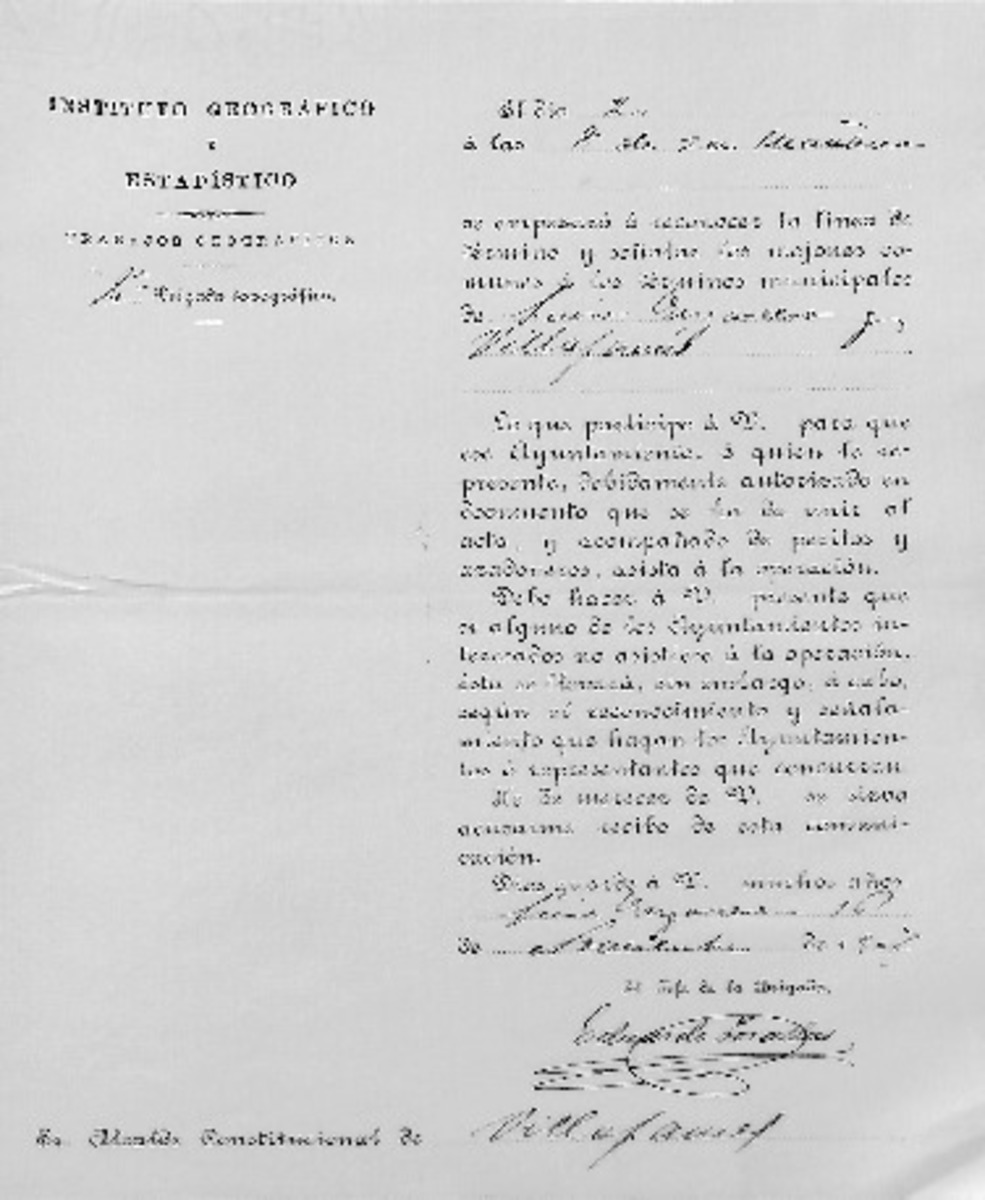 INSTITUTO GEOGRÁFICO
Y
ESTADÍSTICO
TRABAJOS GEOGRÁFICOS
Brigada topográfica.
El día
á las 8 de la mañana
se empezará á reconocer la línea de
término y señalar los mojones co-
munes á los términos municipales
de y
Villafamés
Lo que participo á V. para que
ese Ayuntamiento, ó quien le re-
presente, debidamente autorizado en
documento que se ha de unir al
acta, y acompañado de peritos y
azadoneros, asista á la operación.
Debo hacer á V. presente que
si alguno de los Ayuntamientos in-
teresados no asistiere á la operación,
ésta se llevará, sin embargo, á cabo,
según el reconocimiento y señala-
miento que hagan los Ayuntamien-
tos ó representantes que concurran.
He de merecer de V. se sirva
acusarme recibo de esta comuni-
cación.
Dios guarde á V. muchos años
de de
El Jefe de la Brigada,
Eduardo
Sr. Alcalde Constitucional de Villafamés